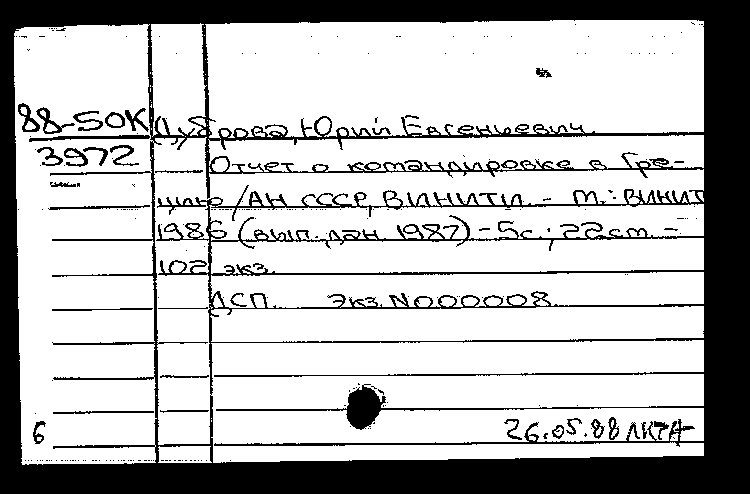 88-50К
3972
Дуброва, Юрий Евгеньевич.
Отчет о командировке в Гре-
цию / АН СССР, ВИНИТИ. - М.: ВИНИТ
1986 (вып. дан. 1987) - 5с.; 22см. -
102 экз.
ДСП. Экз. N000008.
6
26.05.88 ЛКТА